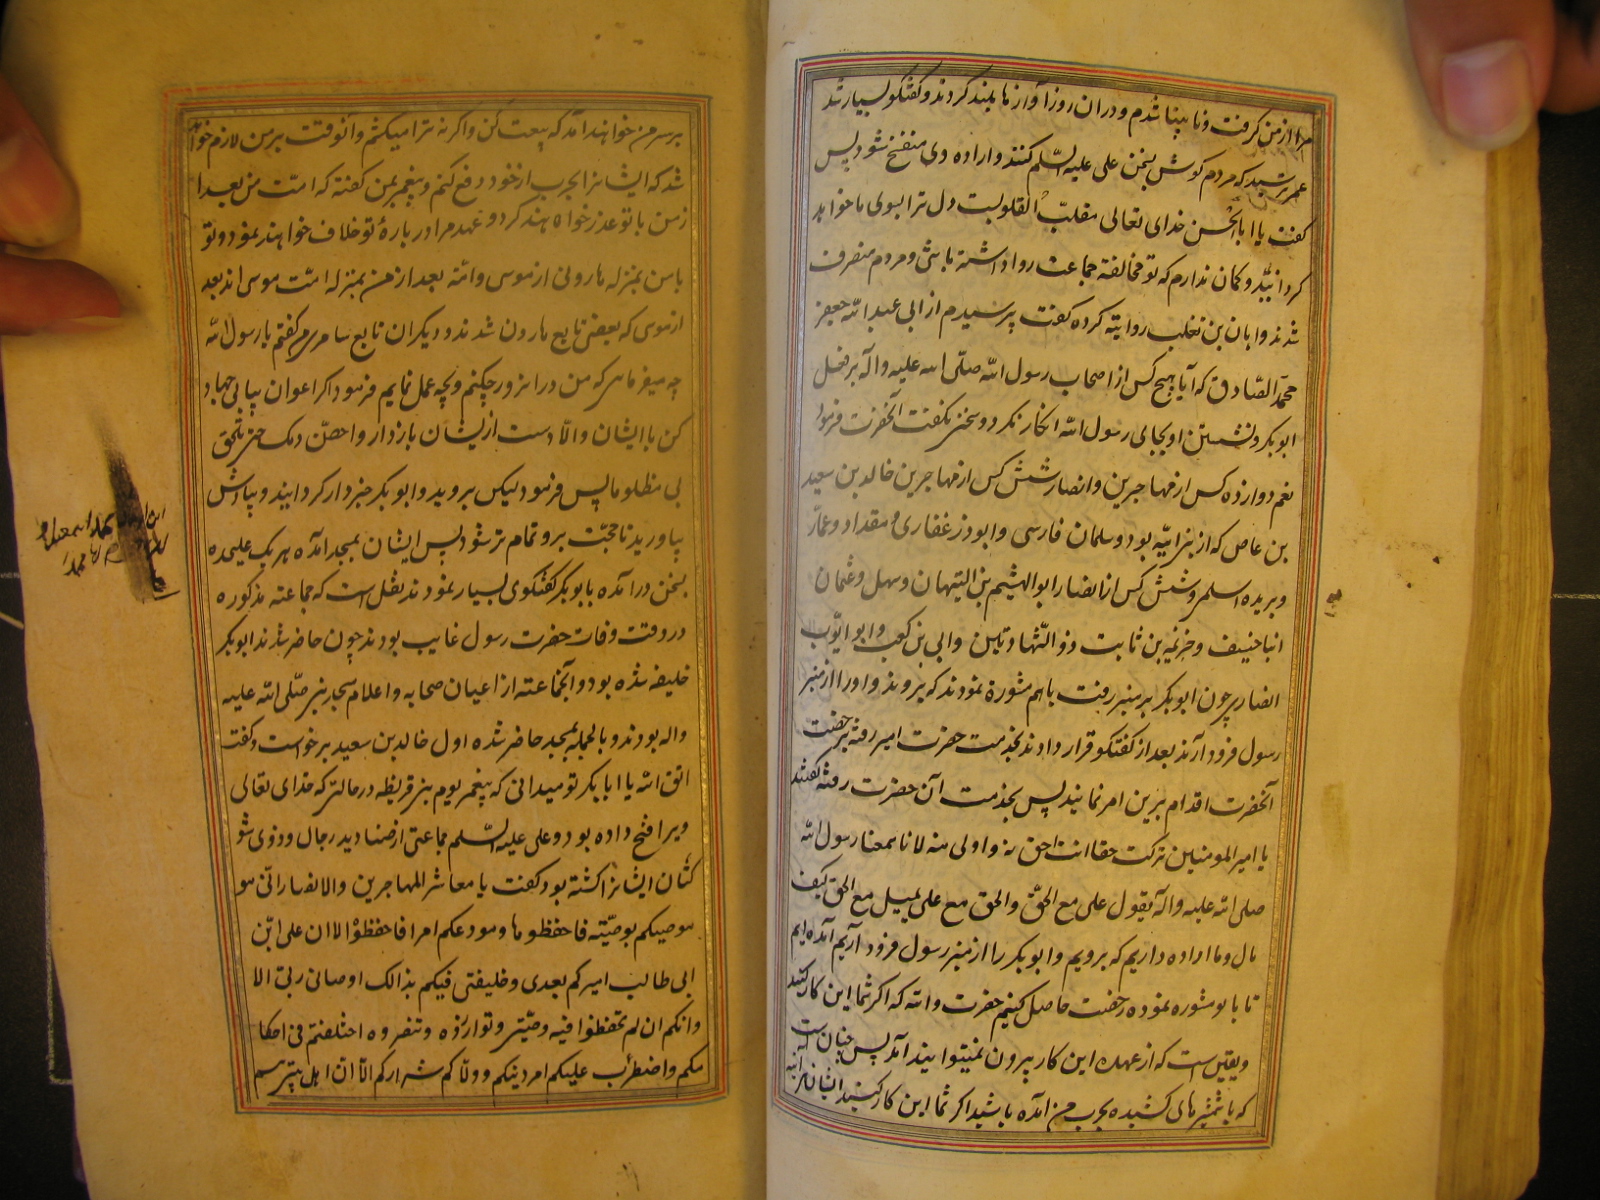 مرا از من گرفت و نابینا شدم و دران روز آوازها بلند کردند و گفتگو بسیار شد
عمر ترسید که مردم گوش بسخن علی علیه السّلم کنند و اراده وی منفسخ شود پس
گفت یا ابا الحسن خدای تعالی مقلّب القلوبست دل ترا بسوی ما خواهد
گردانید و گمان ندارم که تو مخالفة جماعت روا داشته باشی و مردم متفرق
شدند و ابان بن تغلب روایة کرده گفت پرسیدم از ابی عبد الله جعفر
محمد الصّادق که آیا هیچ کس از اصحاب رسول الله صلّی الله علیه و آله بر فعل
ابو بکر و نشستن او بجای رسول الله انکار نکرد و سخن نگفت آنحضرت فرمود
نعم دوازده کس از مهاجرین و انصار شش کس از مهاجرین خالد بن سعید
بن عاص که از بنی امیّه بود و سلمان فارسی و ابو ذر غفاری و مقداد و عمّار
و بریده اسلمی و شش کس از انصار ابو الهیثم بن التیهان و سهل و عثمان
ابنا حنیف و خزیمه بن ثابت ذو الشّهادتین و ابی بن کعب و ابو ایّوب
انصاری چون ابو بکر بر منبر رفت باهم مشورة نمودند که بروند و او را از منبر
رسول فرود آرند بعد از گفتگو قرار دادند بخدمت حضرت امیر رفته برخصت
آنحضرت اقدام برین امر نمایند پس بخدمت آن حضرت رفته گفتند
یا امیر المومنین ترکت حقا انت احق به و اولی منه لانا سمعنا رسول الله
صلی الله علیه و آله یقول علی مع الحقّ و الحق مع علی یمیل مع الحق کیف
مال و ما اراده داریم که برویم و ابو بکر را از منبر رسول فرود آریم آمده ایم
تا با تو مشوره نموده رخصت حاصل کنیم حضرت والله که اگر شما این کار کنید
و یقین است که از عهده این کار بیرون نمیتوانید آمد پس چنان است که
که با شمشیرهای کشیده بحرب من آمده باشید اگر شما این کار کنید ایشان
بر سر من خواهند آمد که بیعت کن و اگر نه ترا میکشم و آنوقت بر من لازم خواهد
شد که ایشانرا بحرب از خود دفع کنم و پیغمبر بمن گفته که امت من بعد ا
ز من با تو عذر خواهند کرد و عهد مرا در بارۀ تو خلاف خواهند نمود و تو
با من بمنزله هارونی از موسی و امّة بعد از من بمنزله امّت موسی اند بعد
از موسی که بعضی تابع هارون شدند و دیگران تابع سامری من گفتم یا رسول الله
چه میفرمائی که من در انروز چکنم و بچه عمل نمایم فرمود اگر اعوان بیابی جهاد
کن با ایشان و الّا دست از ایشان بازدار و احصن دمک حتی تلحق
بی مظلوما پس فرمود لیکن بروید و ابو بکر خبردار گردانید و بیادش
بیاورید تا حجّت برو تمام تر شود پس ایشان بمسجد آمده هر یک علیحده
بسخن در آمده با ابو بکر گفتگوی بسیار نمودند نقل است که جماعته مذکوره
در وقت وفات حضرت رسول غایب بودند چون حاضر شدند ابو بکر
خلیفه شده بود و آنجماعته از اعیان صحابه و اعلام مسجد پیغمبر صلّی الله علیه
و اله بودند و بالجمله بمسجد حاضر شده اول خالد بن سعید برخواست و گفت
اتق الله یا ابا بکر تو میدانی که پیغمبر یوم بنی قریظه در حالتی که خدای تعالی
ویرا فتح داده بود و علی علیه السّلم جماعتی از صنادید رجال و ذوی شو
کتان ایشانرا کشته بود گفت یا معاشر المهاجرین و الانصار انی مو
موصیکم بوصیّته فاحفظوها و مودعکم امرا فاحفظوه الا ان علی ابن
ابی طالب امیرکم بعدی و خلیفتی فیکم بذالک اوصانی ربی الا
وانکم ان لم تحفظوا فیه وصیّتی و توازروه و تنصروه اختلفتم فی احکا
مکم و اضطرب علیکم امر دینکم و ولّاکم شرارکم الا ان اهل بیتی